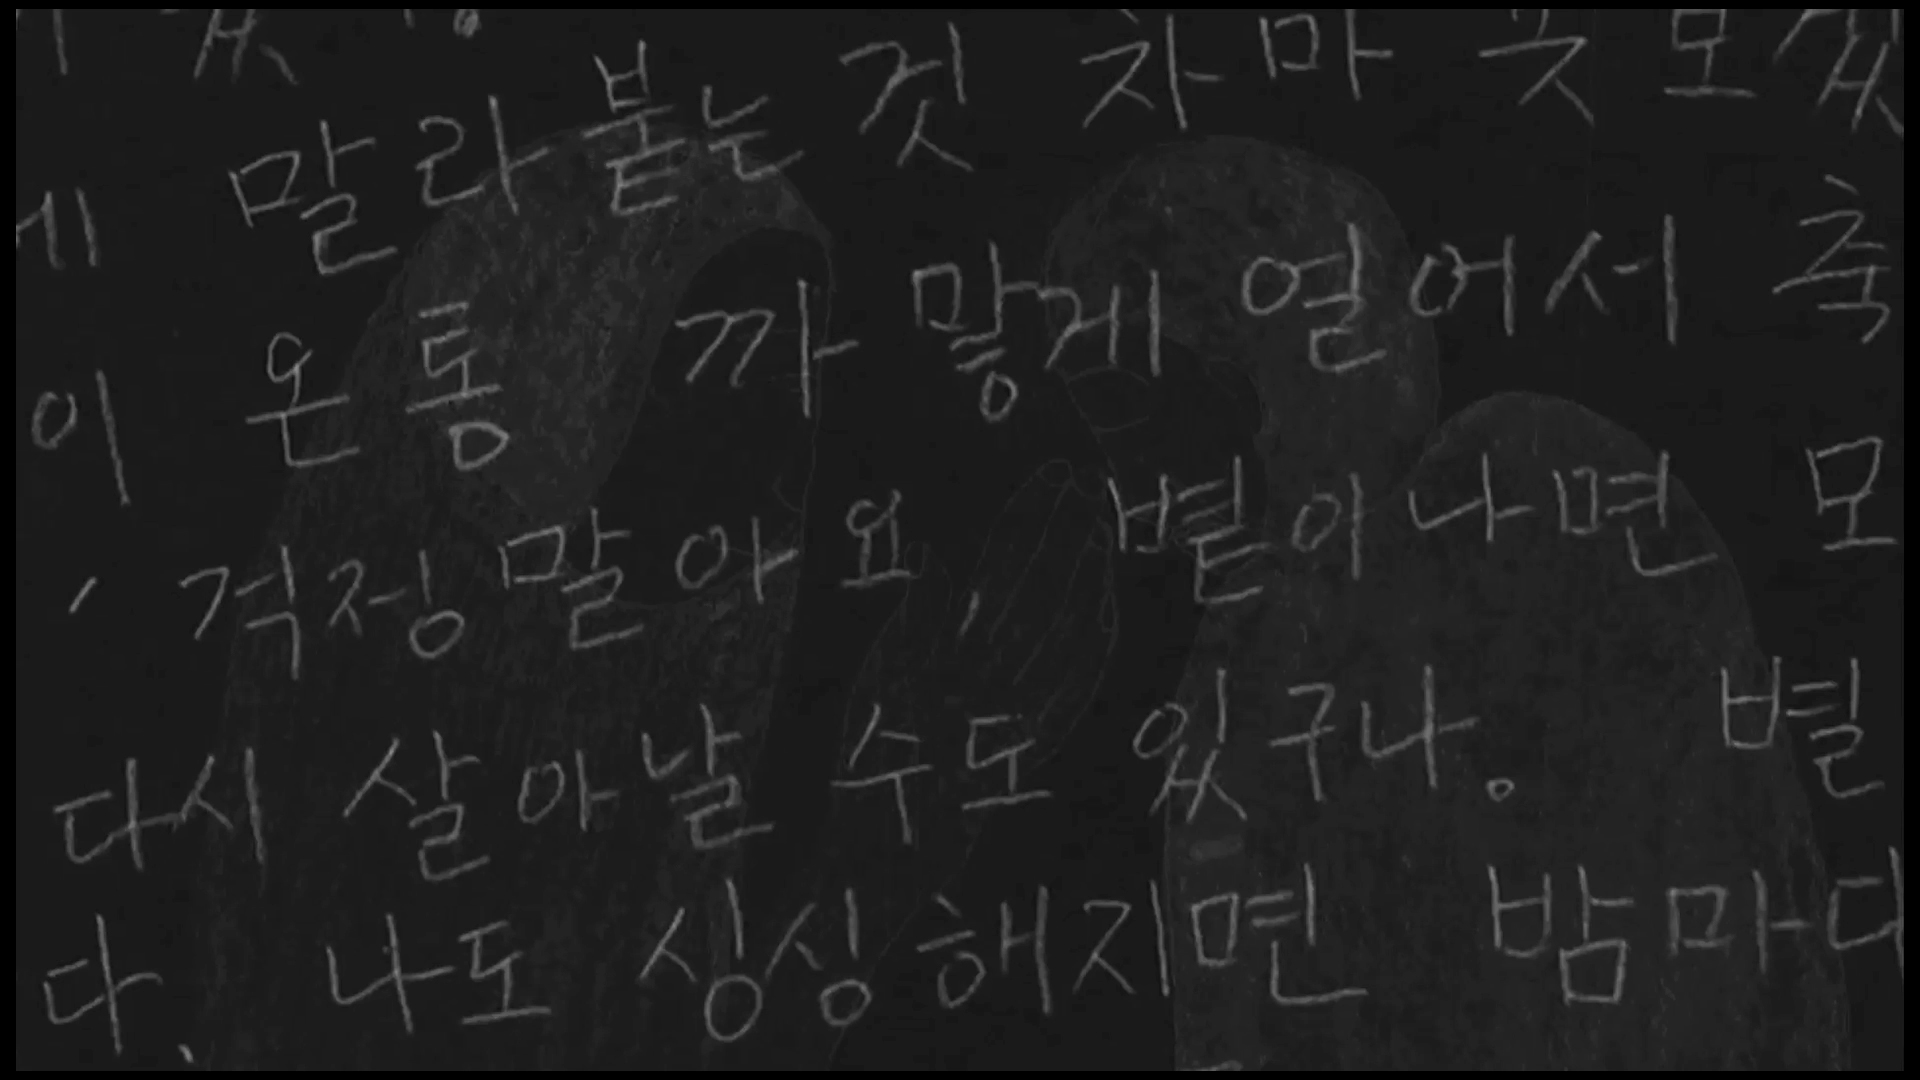 말라붙는 것 차마
이 온통 까맣게 열어서 축
, 걱정 말아요, 볕이 나면 모
다시 살아날 수도 있구나. 별
다. 나도 싱싱해지면 밤마다